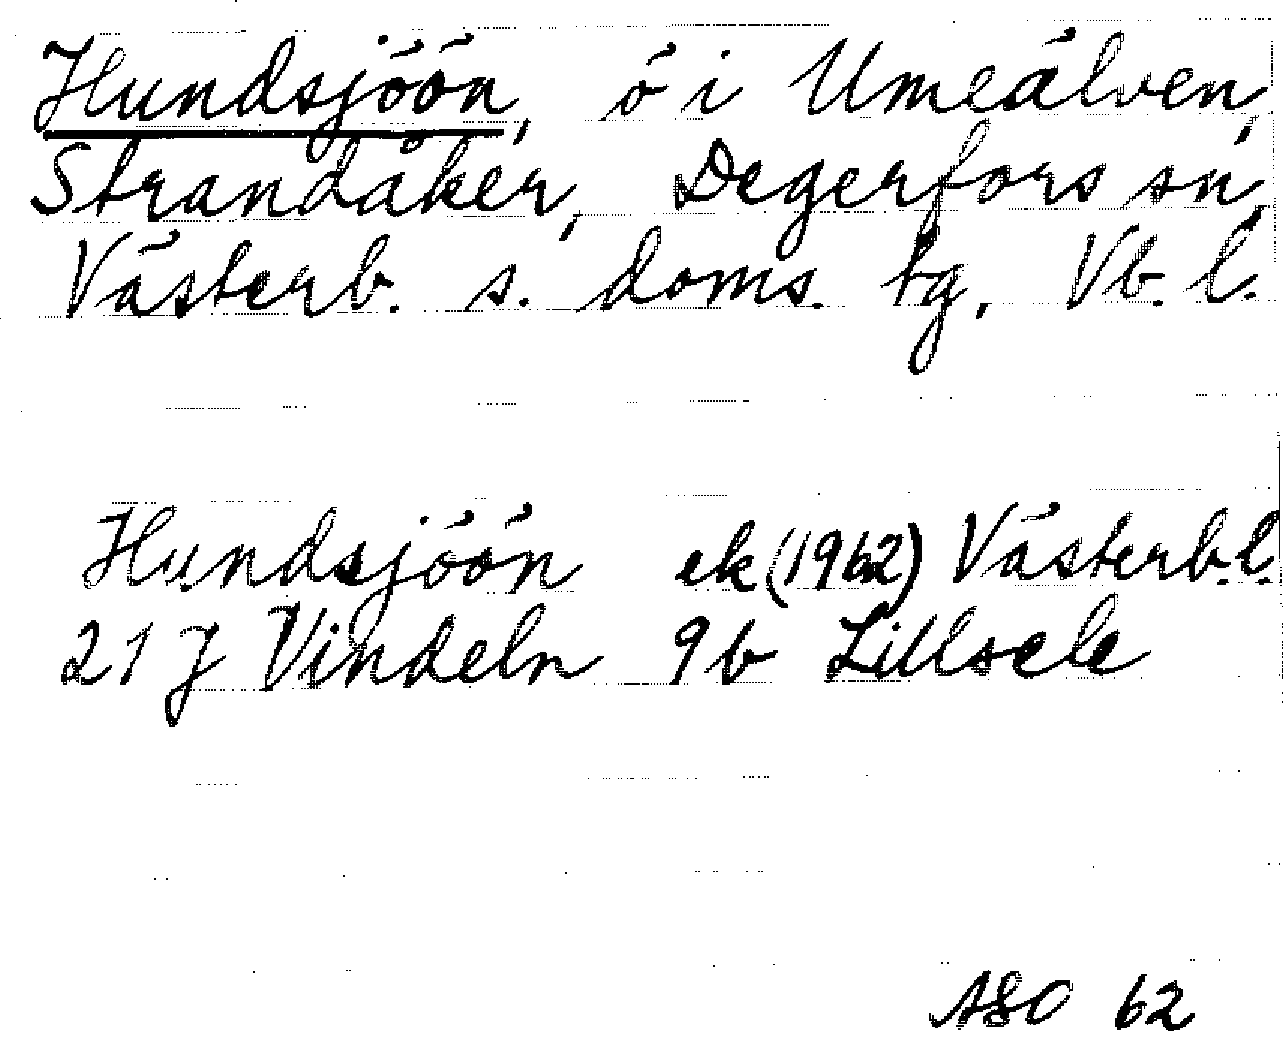 Hundsjöön, ö i Umeälven,
Strandåker, Degerfors sn,
Västerb. s. doms. tg, Vb. l.
Hundsjöön ek (1962) Västerb.l.
21 J Vindeln 9b Lillsele
ASO 62